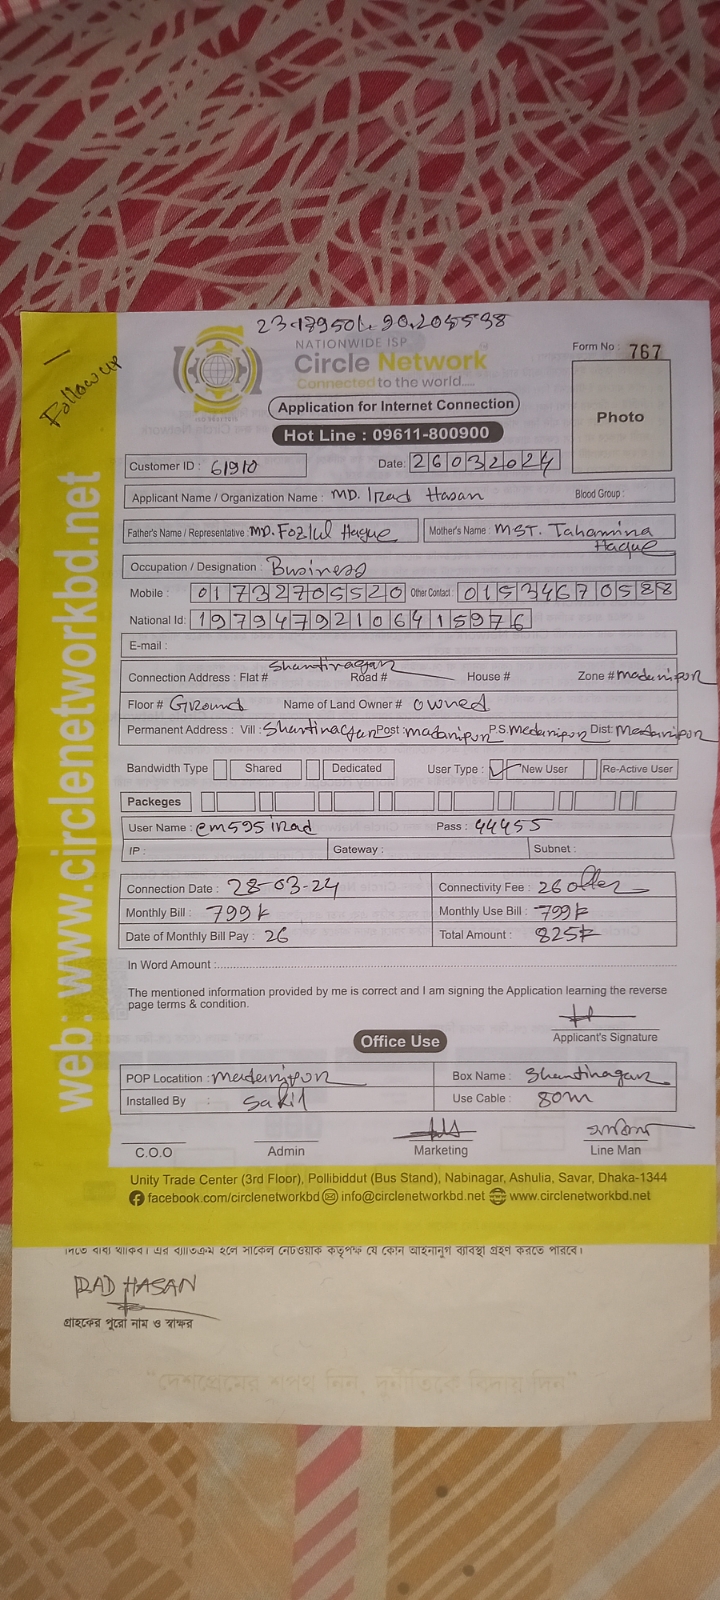 23.179501, 90.205538
NATIONWIDE ISP
Circle Network
Connected to the world....
Form No : 767
Follow up
Application for Internet Connection
Photo
Hot Line : 09611-800900
Customer ID : 61910 Date: 26032024
Applicant Name / Organization Name : MD. Irad Hasan Blood Group :
Father's Name / Representative : MD. Fozlul Haque Mother's Name : MST. Tahamina Haque
Occupation / Designation : Business
Mobile : 01732705520 Other Contact : 01534670588
National Id: 19794792106415976
E-mail :
Connection Address : Flat # Shantinagar Road # House # Zone # madaripur
Floor # Ground Name of Land Owner # owned
Permanent Address : Vill : Shantinagar Post : madaripur P.S. Madaripur Dist: Madaripur
Bandwidth Type Shared Dedicated User Type : New User Re-Active User
Packeges
User Name : em595irad Pass : 44455
IP : Gateway : Subnet :
Connection Date : 28-03-24 Connectivity Fee : 26 offer
Monthly Bill : 799 Monthly Use Bill : 799
Date of Monthly Bill Pay : 26 Total Amount : 825
In Word Amount :
The mentioned information provided by me is correct and I am signing the Application learning the reverse
page terms & condition.
Applicant's Signature
Office Use
POP Locatition : madaripur Box Name : Shantinagar
Installed By : Sakil Use Cable : 80m
C.O.O Admin Marketing Line Man
Unity Trade Center (3rd Floor), Pollibiddut (Bus Stand), Nabinagar, Ashulia, Savar, Dhaka-1344
facebook.com/circlenetworkbd info@circlenetworkbd.net www.circlenetworkbd.net
web: www.circlenetworkbd.net
দিতে বাধ্য থাকিব। এর ব্যতিক্রম হলে সার্কেল নেটওয়ার্ক কতৃপক্ষ যে কোন আইনানুগ ব্যাবস্থা গ্রহণ করতে পারবে।
IRAD HASAN
গ্রাহকের পুরো নাম ও স্বাক্ষর
"দেশপ্রেমের শপথ নিন, দুর্নীতিকে বিদায় দিন"